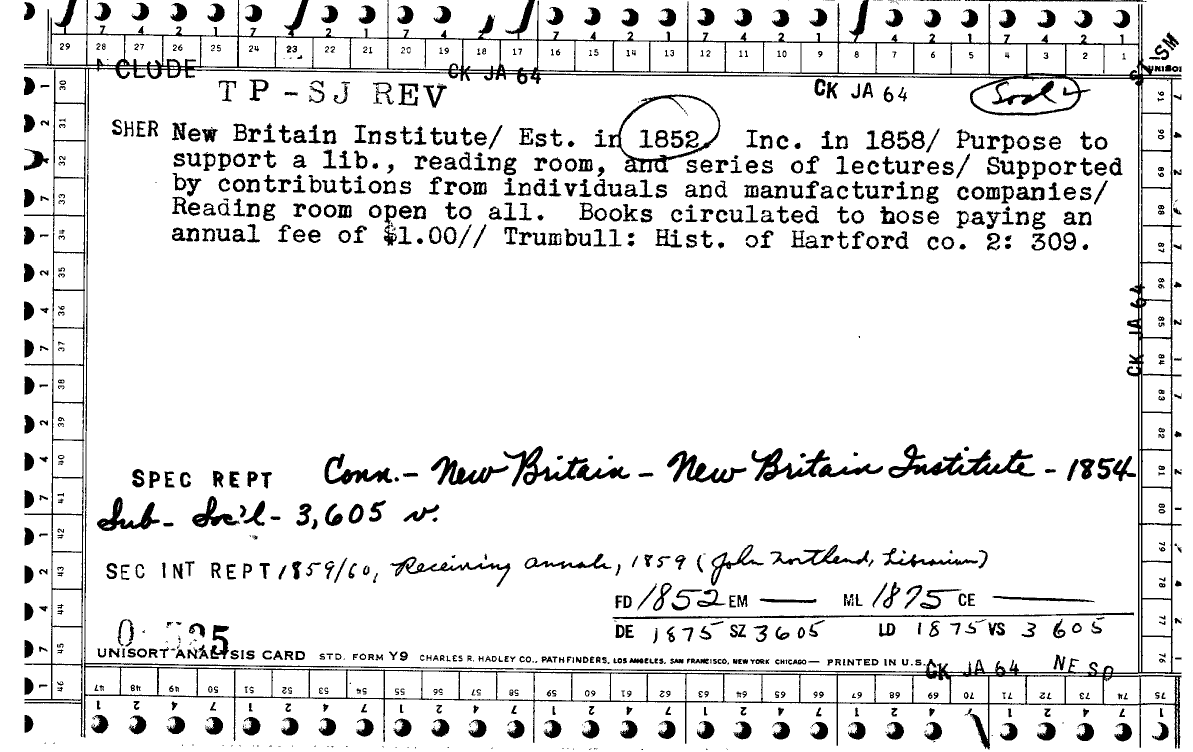 7 4 2 1 7 4 2 1 7 4 2 1 7 4 2 1 7 4 2 1 7 4 2 1 7 4 2 1
29 28 27 26 25 24 23 22 21 20 19 18 17 16 15 14 13 12 11 10 9 8 7 6 5 4 3 2 1
CLUDE CK JA 64 SM UNISO
TP-SJ REV CK JA 64
SHER New Britain Institute/ Est. in 1852. Inc. in 1858/ Purpose to
support a lib., reading room, and series of lectures/ Supported
by contributions from individuals and manufacturing companies/
Reading room open to all. Books circulated to hose paying an
annual fee of $1.00// Trumbull: Hist. of Hartford co. 2: 309.
CK JA 64
SPEC REPT Conn. - New Britain - New Britain Institute - 1854
Sub - Soc'l - 3,605 v.
SEC INT REPT 1859/60, Receiving annals, 1859 (John Northend, Librarian)
FD 1852 EM — ML 1875 CE —
DE 1875 SZ 3605 LD 1875 VS 3 605
UNISORT ANALYSIS CARD STD. FORM Y9 CHARLES R. HADLEY CO., PATHFINDERS, LOS ANGELES, SAN FRANCISCO, NEW YORK CHICAGO — PRINTED IN U.S.
CK JA 64 NE SP
47 48 49 50 51 52 53 54 55 56 57 58 59 60 61 62 63 64 65 66 67 68 69 70 71 72 73 74 75